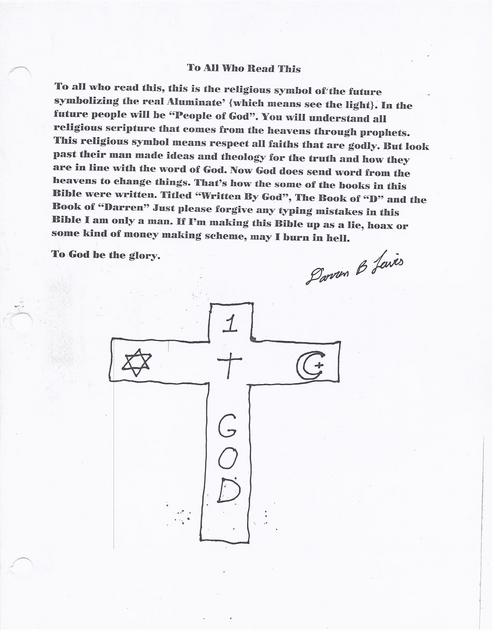 To All Who Read This
To all who read this, this is the religious symbol of the future
symbolizing the real Aluminate' {which means see the light}. In the
future people will be “People of God”. You will understand all
religious scripture that comes from the heavens through prophets.
This religious symbol means respect all faiths that are godly. But look
past their man made ideas and theology for the truth and how they
are in line with the word of God. Now God does send word from the
heavens to change things. That's how the some of the books in this
Bible were written. Titled “Written By God”, The Book of “D” and the
Book of “Darren” Just please forgive any typing mistakes in this
Bible I am only a man. If I'm making this Bible up as a lie, hoax or
some kind of money making scheme, may I burn in hell.
To God be the glory.
Darren B
1
G
O
D